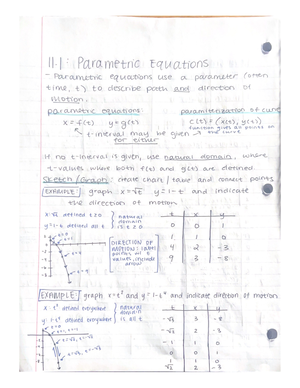 11.1: Parametric Equations
- Parametric equations use a parameter (often
time, t) to describe path and direction of
motion.
parametric equations:
parameterization of curve
x = f(t) y = g(t)
c(t) = (x(t), y(t))
t-interval may be given
for either
function gives us points on
the curve
If no t-interval is given, use natural domain, where
t-values where both f(t) and g(t) are defined.
Sketch/Graph: create chart/table and connect points
EXAMPLE: graph x=√t y=1-t and indicate
the direction of motion
x=√t defined t≥0
y=1-t defined all t
natural
domain
is t≥0
t x y
0 0 1
1 1 0
4 2 -3
9 3 -8
DIRECTION OF
MOTION: label
points w/ t
values, include
arrow
EXAMPLE: graph x=t² and y=1-t⁴ and indicate direction of motion
x=t² defined everywhere
y=1-t⁴ defined everywhere
natural domain
is all t
t x y
-√3 3 -8
-√2 2 -3
-1 1 0
0 0 1
1 1 0
√2 2 -3